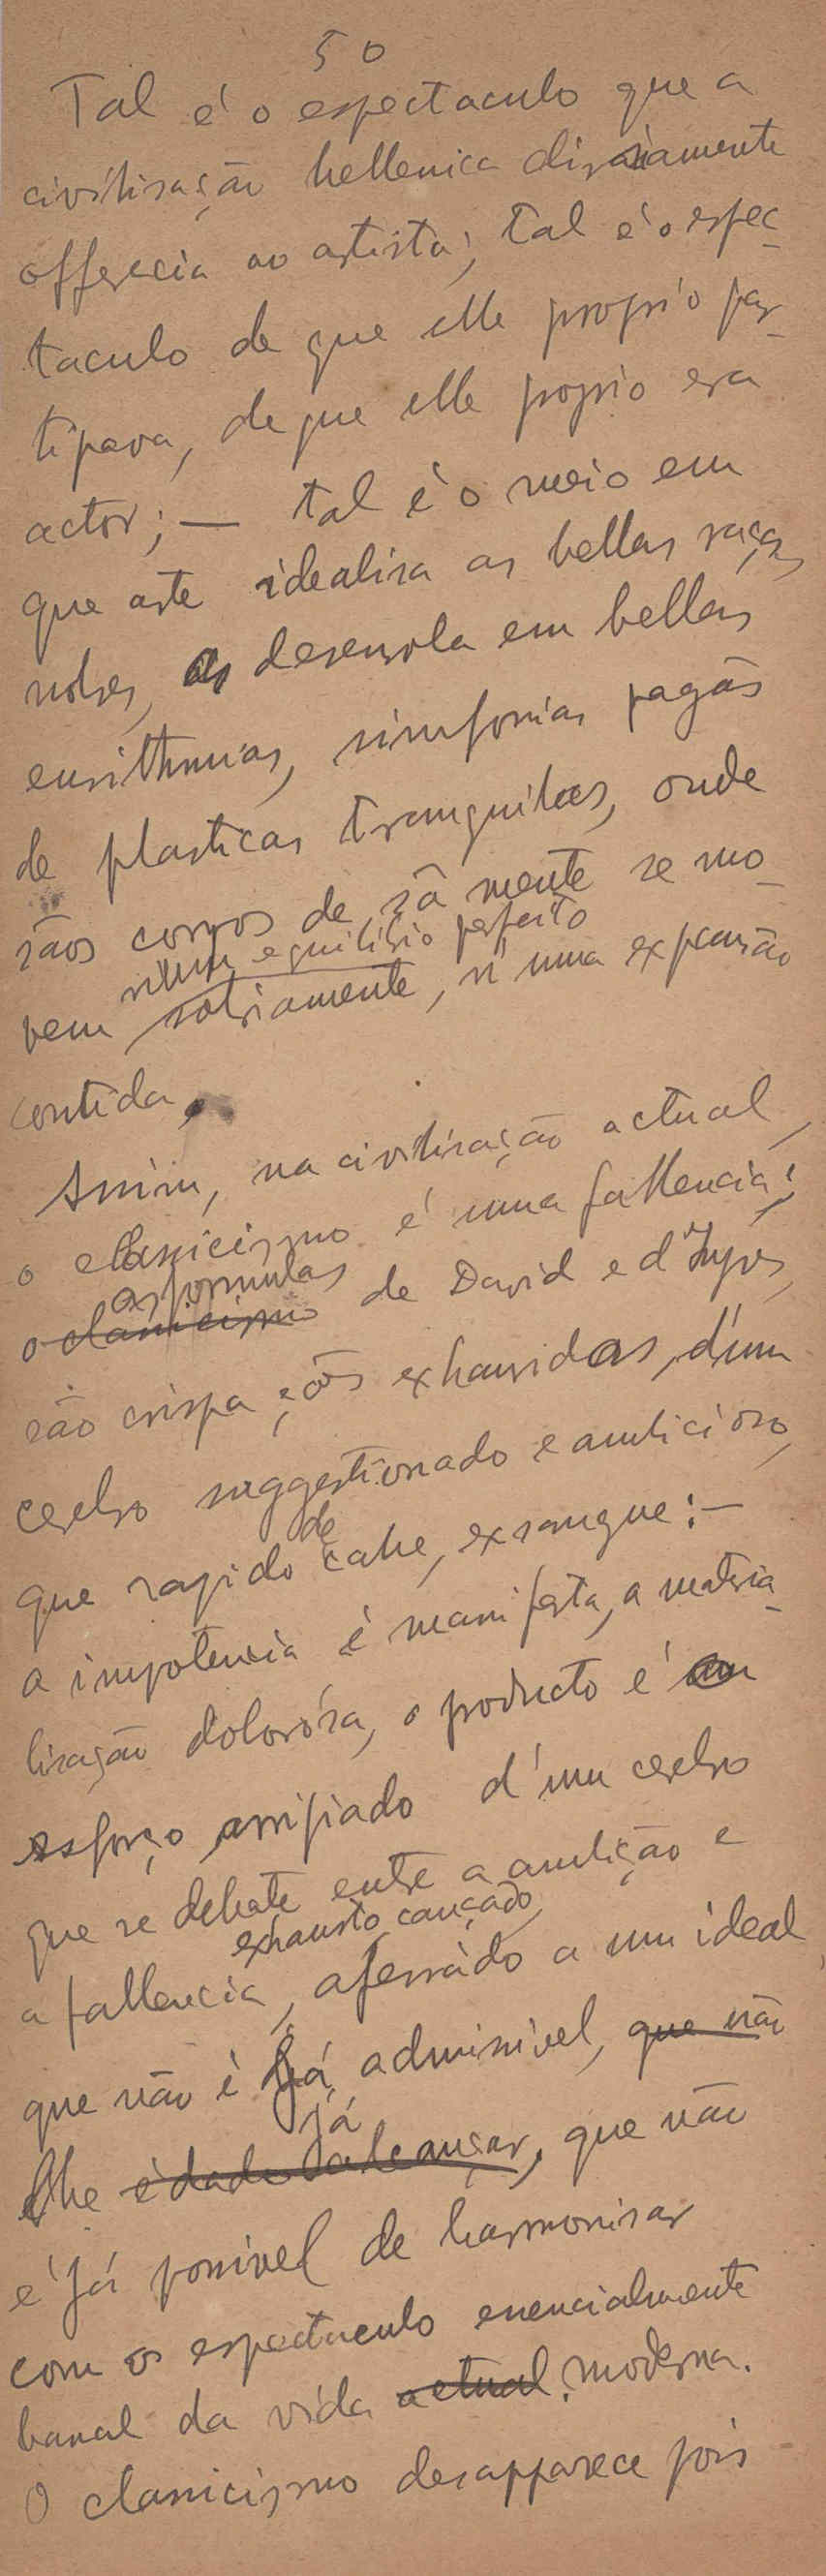 50
Tal é o espectaculo que a
civilisação hellenica diariamente
offerecia ao artista; tal é o espec-
taculo de que elle proprio par-
tipava, de que elle proprio era
actor; — tal é o meio em
que arte idealisa as bellas raças
nobres, as desenrola em bellas
eurithmias, simfonias pagãs
de plasticas tranquilas, onde
sãos corpos de sã mente se mo-
equilibrio perfeito
vem sobriamente, n'uma expansão
contida.
Assim, na civilisação actual,
o classicismo é uma fallencia;
as formulas
o classicismo de David e d'Ingres,
são crispações exhauridas, d'um
cerebro suggestionado e ambicioso,
de
que rapido cahe, exsangue: —
a impotencia é manifesta, a materia-
lisação dolorósa, o producto é um
esforço arripiado d'um cerebro
que se debate entre a ambição e
exhausto, cançado,
a fallencia, aferrádo a um ideal
que não é já admissivel, que não
já
lhe é dado alcançar, que não
é já possivel de harmonisar
com o espectaculo essencialmente
banal da vida actual. moderna.
O classicismo desapparece pois